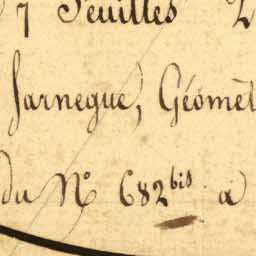 7 Feuilles
Jarnegue, Géomèt
du N° 682 bis a